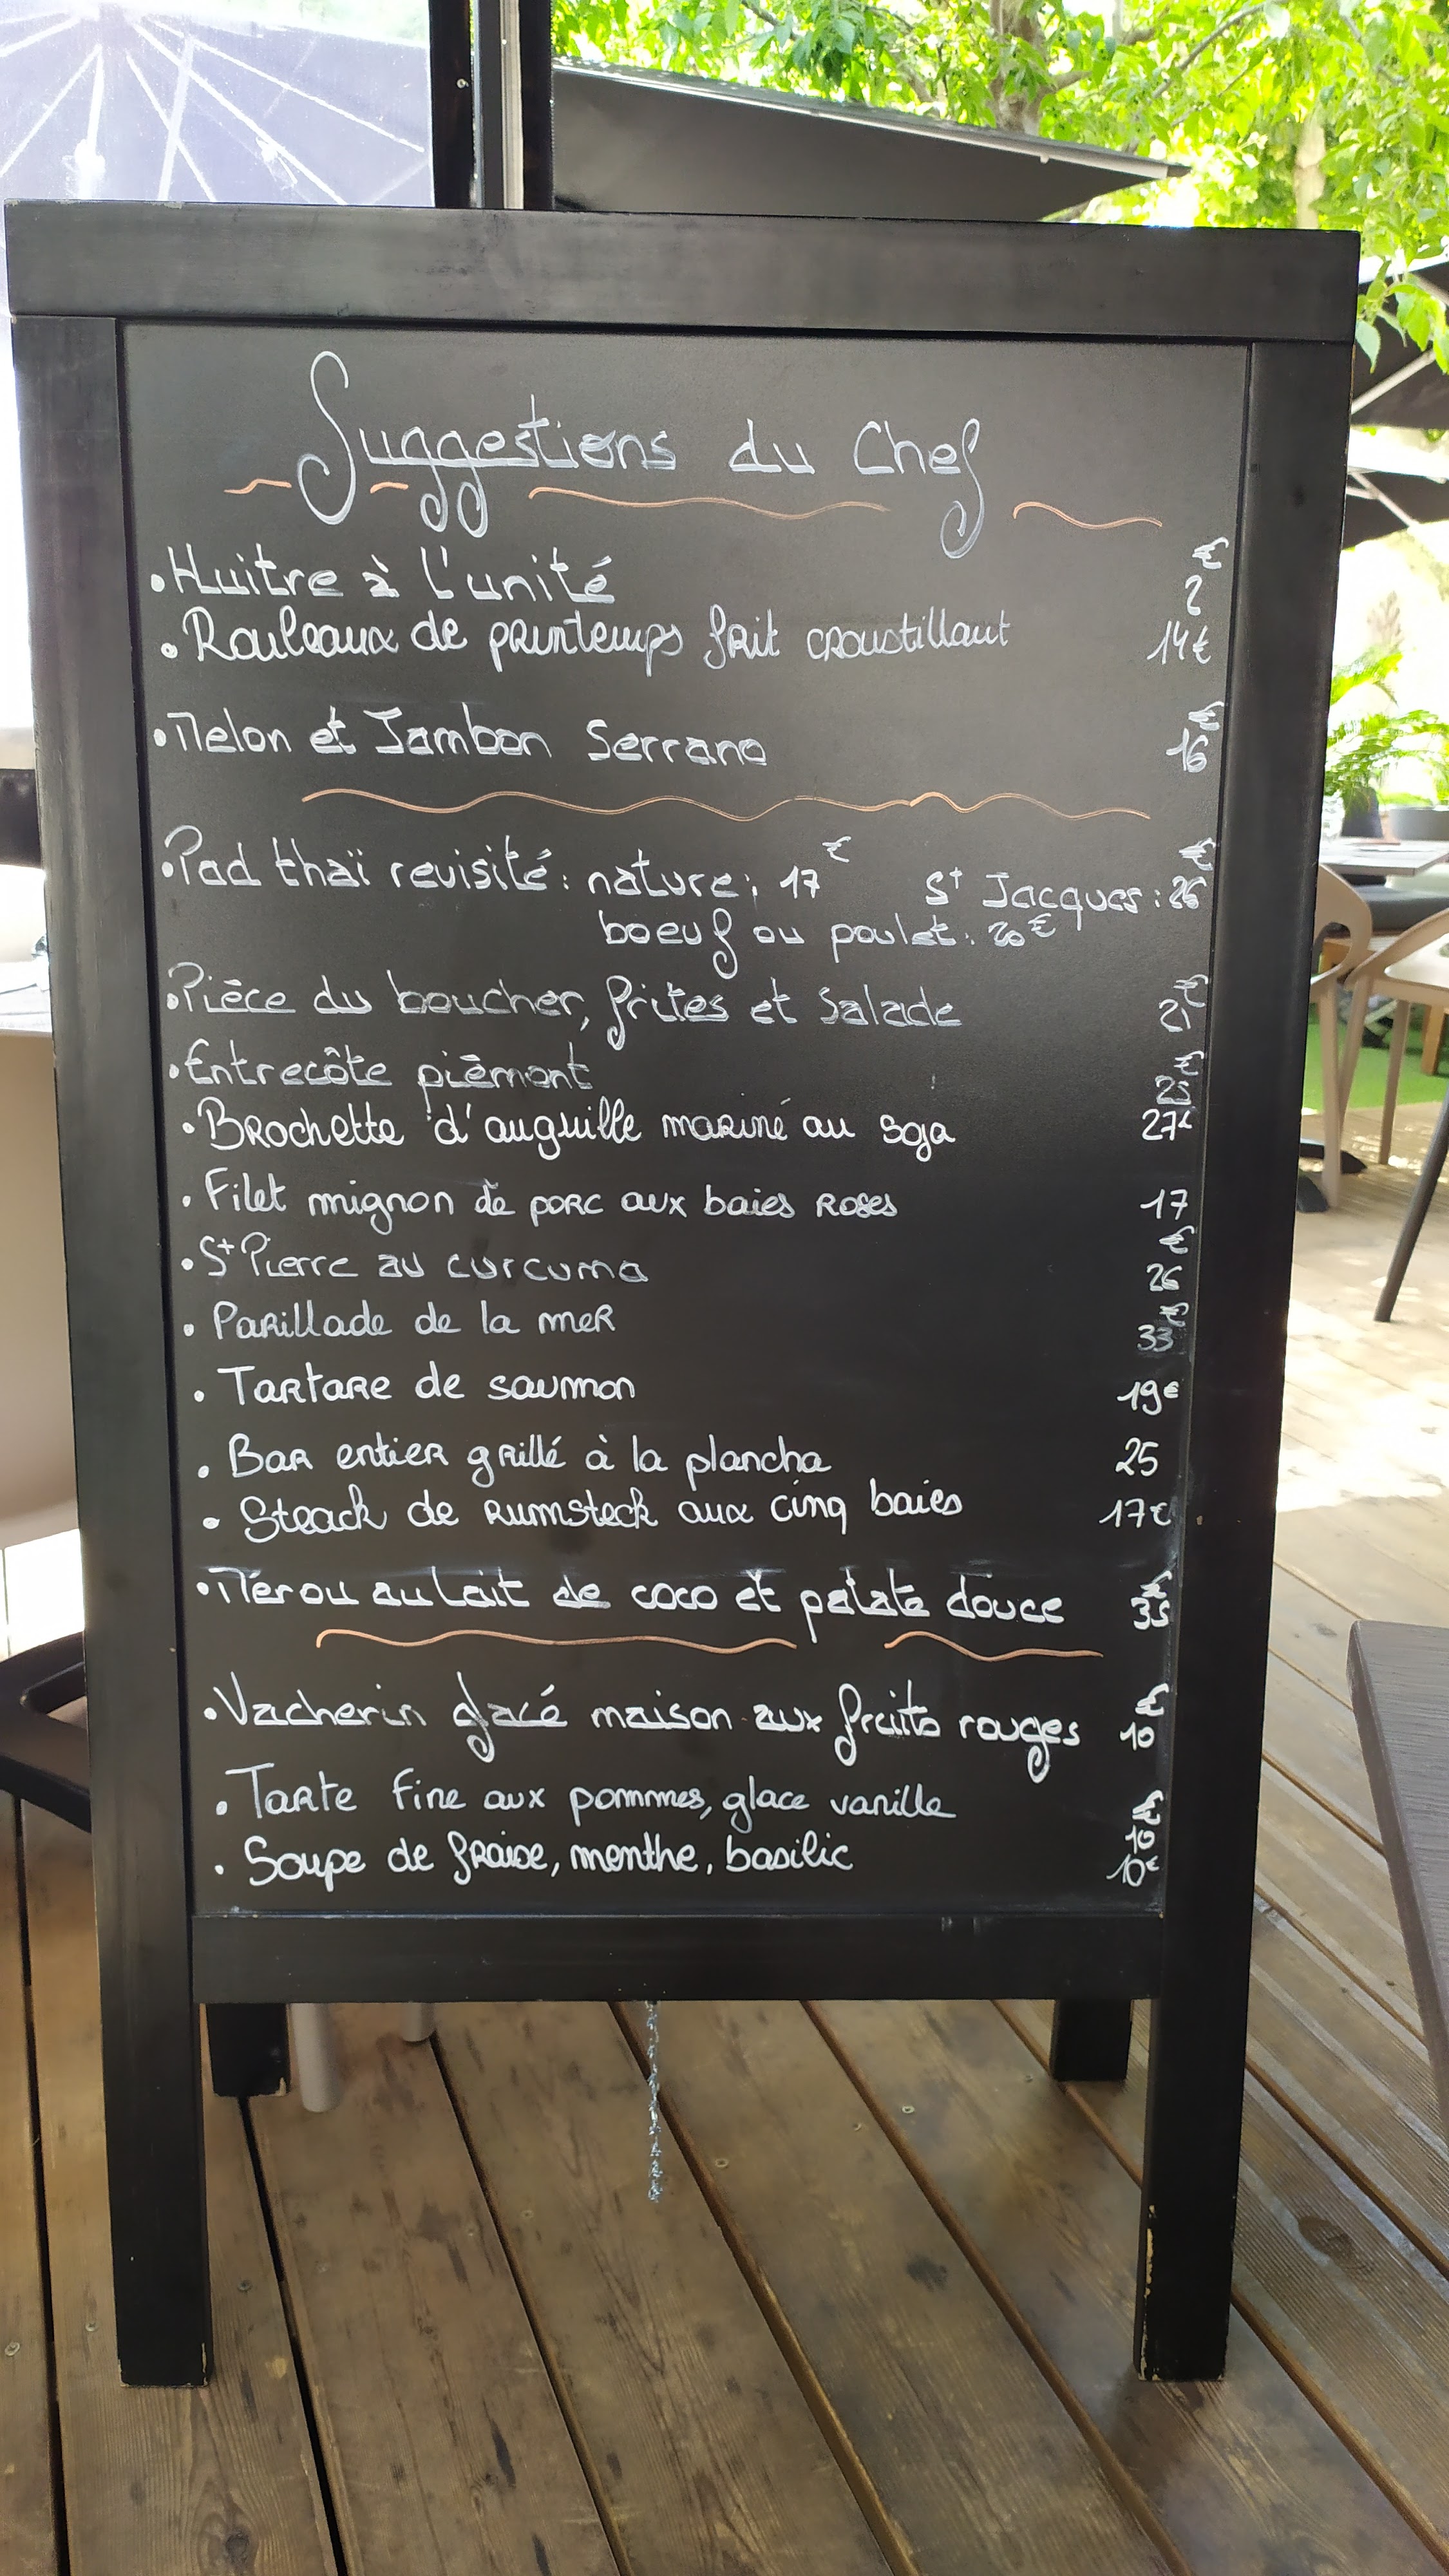 Suggestions du Chef
• Huitre à l'unité 2€
• Rouleaux de printemps frit croustillant 14€
• Melon et Jambon Serrano 16€
• Pad thaï revisité: nature: 17€ St Jacques: 26€
boeuf ou poulet: 20€
• Pièce du boucher, frites et salade 21€
• Entrecôte piémont 25€
• Brochette d'anguille mariné au soja 27€
• Filet mignon de porc aux baies roses 17
• St Pierre au curcuma 26€
• Parillade de la mer 33€
• Tartare de saumon 19€
• Bar entier grillé à la plancha 25
• Steack de rumsteck aux cinq baies 17€
• Mérou au lait de coco et patate douce 35€
• Vacherin glacé maison aux fruits rouges 10€
• Tarte fine aux pommes, glace vanille 10€
• Soupe de fraise, menthe, basilic 10€